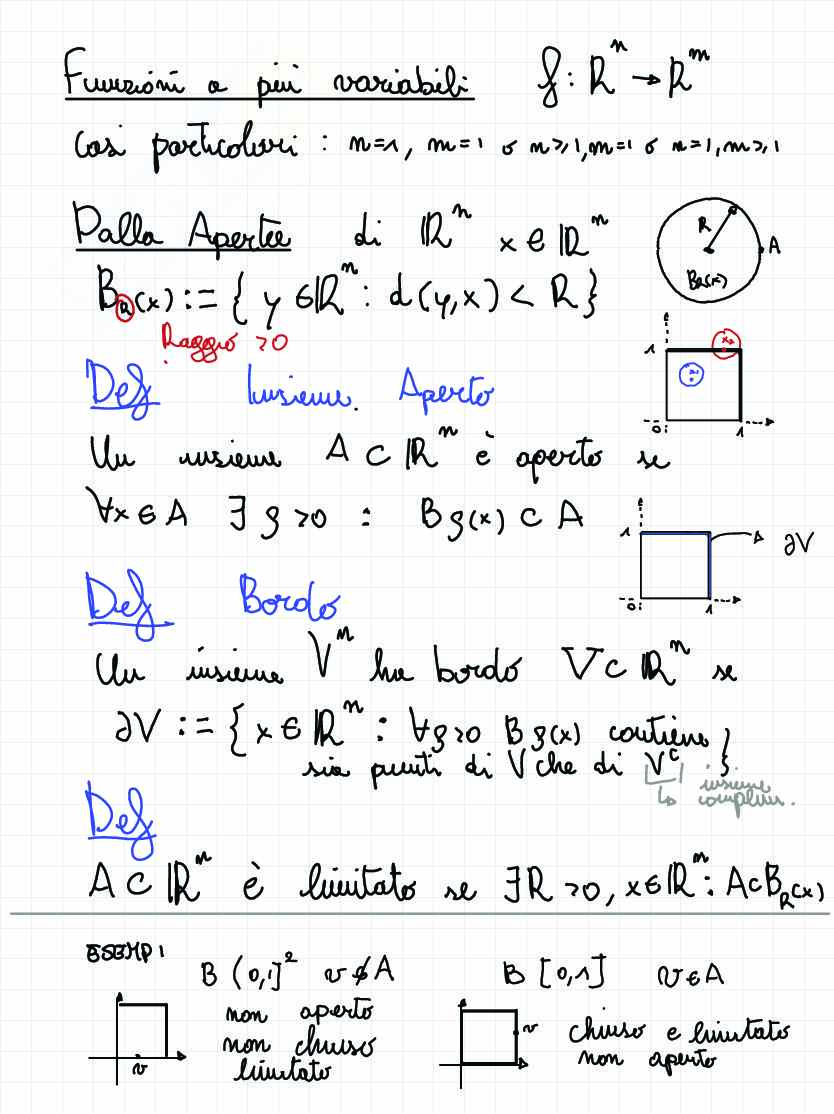 Funzioni a più variabili f : ℝⁿ → ℝᵐ
Casi particolari : n=1, m=1 o n≥1, m=1 o n=1, m≥1
Palla Aperta di ℝⁿ x ∈ ℝⁿ
B_R(x) := { y ∈ ℝⁿ : d(y,x) < R }
Raggio >0
R
A
B_R(x)
Def Insieme Aperto
1
0
1
Un insieme A ⊂ ℝⁿ è aperto se
∀x ∈ A ∃ρ>0 : Bρ(x) ⊂ A
1
∂V
0
1
Def Bordo
Un insieme Vⁿ ha bordo V ⊂ ℝⁿ se
∂V := { x ∈ ℝⁿ : ∀ρ>0 Bρ(x) contiene
sia punti di V che di Vᶜ }
insieme
complem.
Def
A ⊂ ℝⁿ è limitato se ∃R>0, x∈ℝⁿ : A⊂B_R(x)
ESEMPI
B (0,1]² v ∉ A
non aperto
non chiuso
limitato
v
B [0,1] v ∈ A
v
chiuso e limitato
non aperto